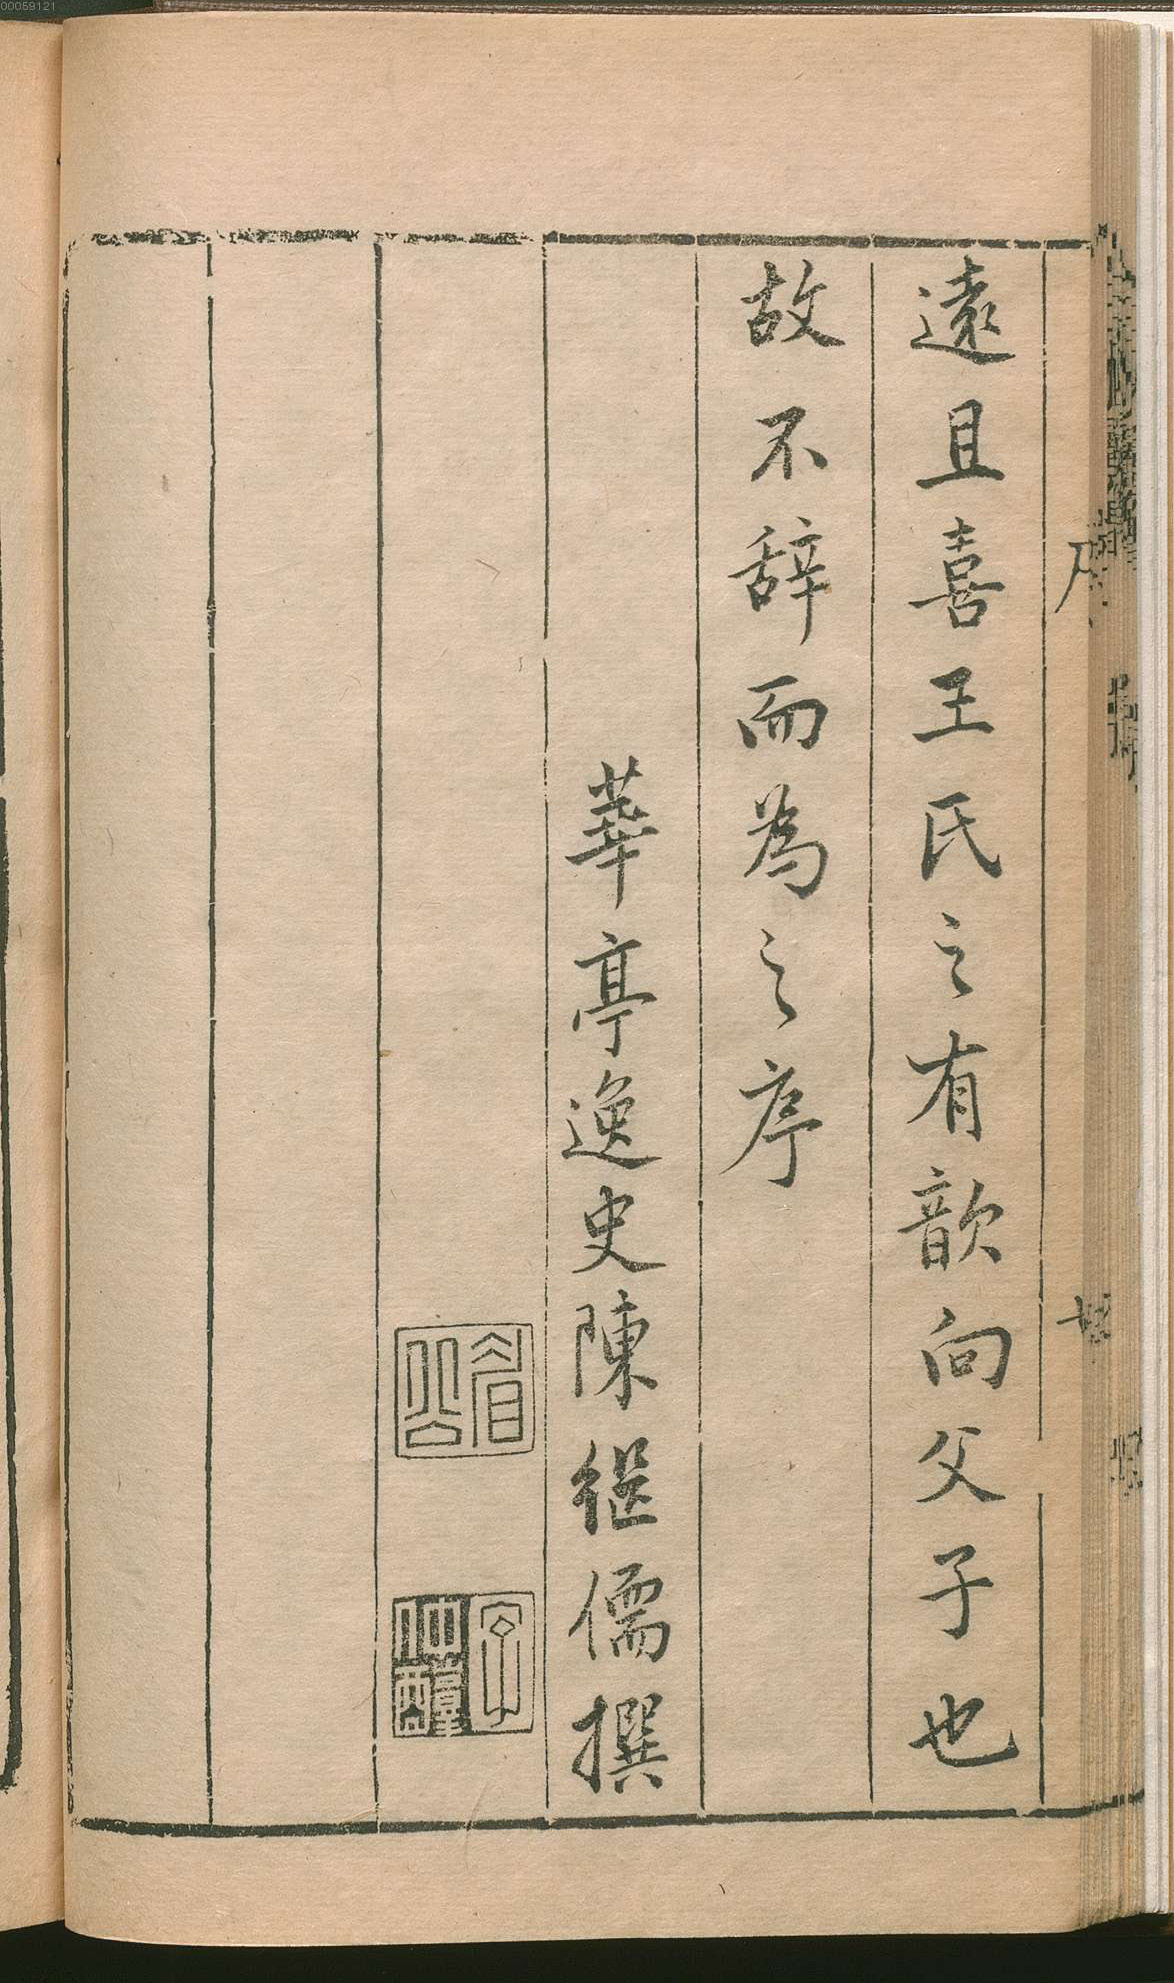 遠且喜王氏之有歆向父子也
故不辞而為之序
華亭逸史陳継儒撰
眉公
00059121
序